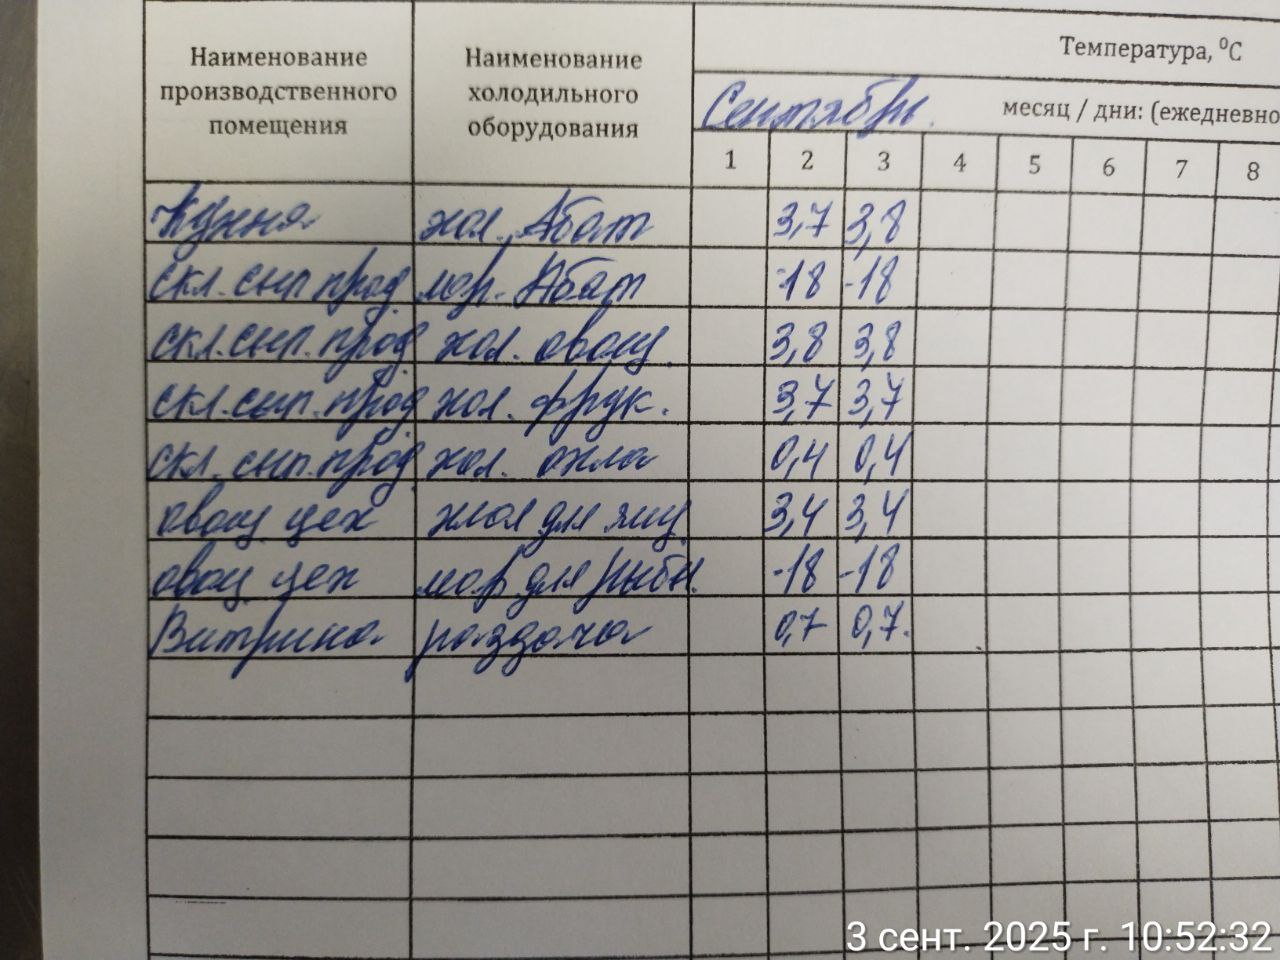 Наименование производственного помещения
Наименование холодильного оборудования
Температура, ⁰С
Сентябрь. месяц / дни: (ежедневно
1 2 3 4 5 6 7 8
Кухня хол. Абат 3,7 3,8
скл. сып. прод. мор. Абат -18 -18
скл. сып. прод. хол. овощ. 3,8 3,8
скл. сып. прод. хол. фрук. 3,7 3,7
скл. сып. прод. хол. 0,4 0,4
овощ. цех для яиц 3,4 3,4
овощ. цех мор для рыбы. -18 -18
Витрина раздача 0,7 0,7.
3 сент. 2025 г. 10:52:32